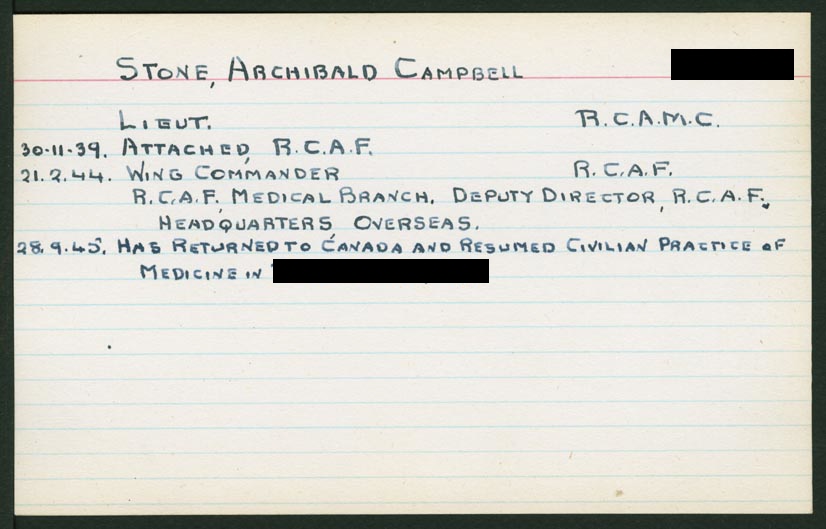 STONE, ARCHIBALD CAMPBELL
LIEUT. R.C.A.M.C.
30.11.39. ATTACHED, R.C.A.F.
21.2.44. WING COMMANDER R.C.A.F.
R.C.A.F. MEDICAL BRANCH. DEPUTY DIRECTOR, R.C.A.F.
HEADQUARTERS OVERSEAS.
28.9.45. HAS RETURNED TO CANADA AND RESUMED CIVILIAN PRACTICE OF
MEDICINE IN